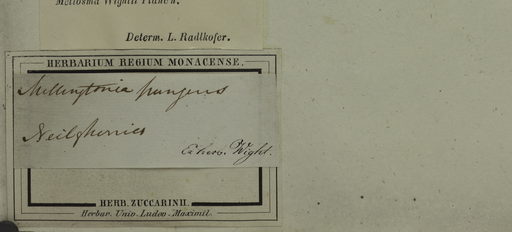 Meliosma Wightii Planch.
Determ. L. Radlkofer.
HERBARIUM REGIUM MONACENSE.
Millingtonia pungens
Neilgherries
Ex herb. Wight.
HERB. ZUCCARINII.
Herbar. Univ. Ludov. Maximil.